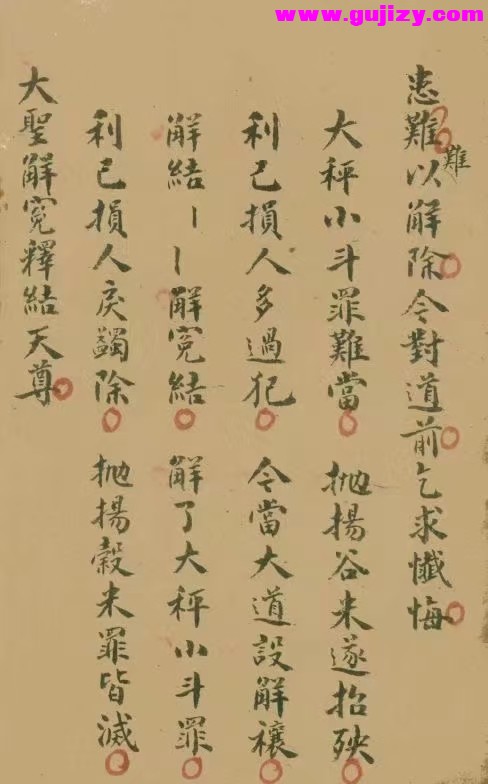 www.gujizy.com
患難難以解除令對道前乞求懺悔
大秤小斗罪難當 拋揚谷米遂招殃
利己損人多過犯 令當大道設解禳
解結丨丨解冤結 解了大秤小斗罪
利己損人戾蠲除 拋揚穀米罪皆滅
大聖解冤釋結天尊